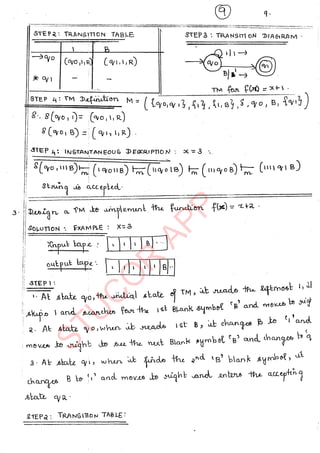 9
9.
STEP2: TRANSITION TABLE
STEP3: TRANSITION DIAGRAM.
1 B
→q0 (q0,1,R) (q1,1,R)
* q1 - -
1/1→
q0 q1
B/1→
TM for f(x) = x+1.
STEP 4: TM Definition M = ( {q0,q1}, {1}, {1,B}, δ, q0, B, {q1} )
δ: δ(q0,1) = (q0,1,R)
δ(q0,B) = (q1,1,R).
STEP 4: INSTANTANEOUS DESCRIPTION: x=3 :
δ(q0,111B) ⊢m (1q011B) ⊢m (11q01B) ⊢m (111q0B) ⊢m (1111q1B)
String is accepted.
3. Design a TM to implement the function f(x)=x+2.
SOLUTION: EXAMPLE: x=3
Input tape: 1 1 1 B ..
output tape: 1 1 1 1 1 B ..
STEP1:
1. At state q0, the initial state of TM, it reads the leftmost 1, it
skips 1 and searches for the 1st Blank symbol 'B' and moves to rig
2. At state q0, when it reads 1st B, it changes B to '1' and
moves to right to see the next Blank symbol 'B' and changes to q
3. At state q1, when it finds the 2nd 'B' blank symbol, it
changes B to '1' and moves to right and enters the accepting
state q2.
STEP2: TRANSITION TABLE:
STUCOR APP